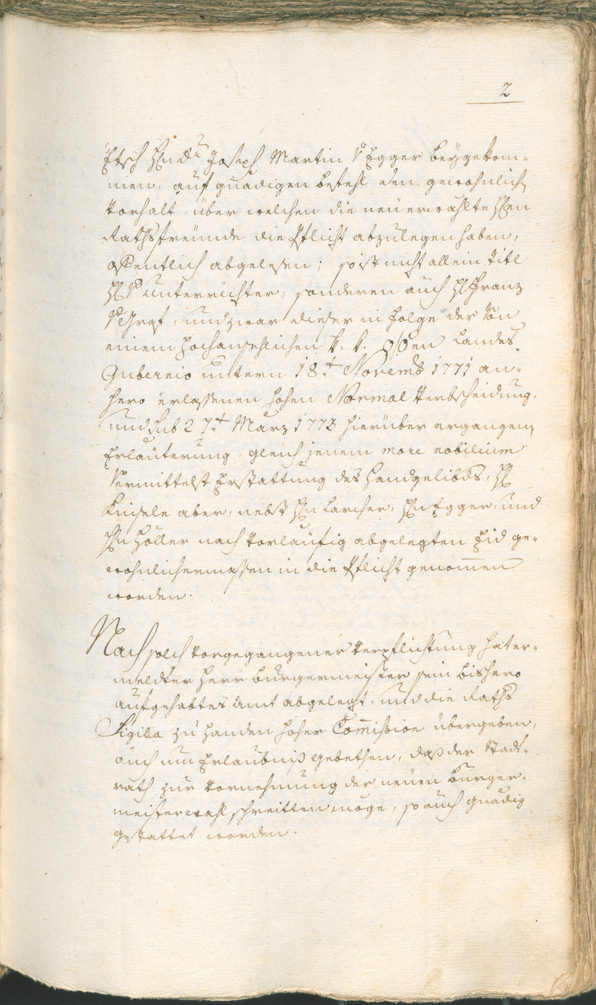 2
Etsch Hn Dr Joseph Martin v Egger beygekom-
men, auf gnädigen befehl den gewohnlich
Vorhalt, über welchen die neuerwählte Hren
Rathsfreünde die Pflicht abzulegen haben,
offentlich abgelesen; so ist nicht allein titl
Hr v Unterrichter, sonderen auch Hr Franz
v Graf, und zwar dieser in folge der Von
einem hochansehlichen k. k. OÖen Landes
Gubernio untern 18.t Novemb 1771 an-
hero erlassenen hohen Normal Verbscheidung,
und sub 27.t März 1773 hierüber ergangenen
Erläuterung, gleich jenem more nobilium
Vermittelst Erstattung des Handgelibds, Hr
Kinsele aber, nebst Hn Larcher, Hn Egger, und
Hn Höller nach Vorläufig abgelegten Eid ge-
wohnlichermassen in die Pflicht genommen
worden.
Nach solch Vorgegangener Verpflichtung hat er-
meldter Herr burgermeister sein bishero
aufgehabtes Amt abgelegt, und die Raths
Sigilla zu handen hoher Commission übergeben,
auch um Erlaubniß gebethen, daß der Stadt-
rath zur Vornehmung der neuen burger-
meisterwahl schreitten möge, so auch gnädig
gestattet worden.